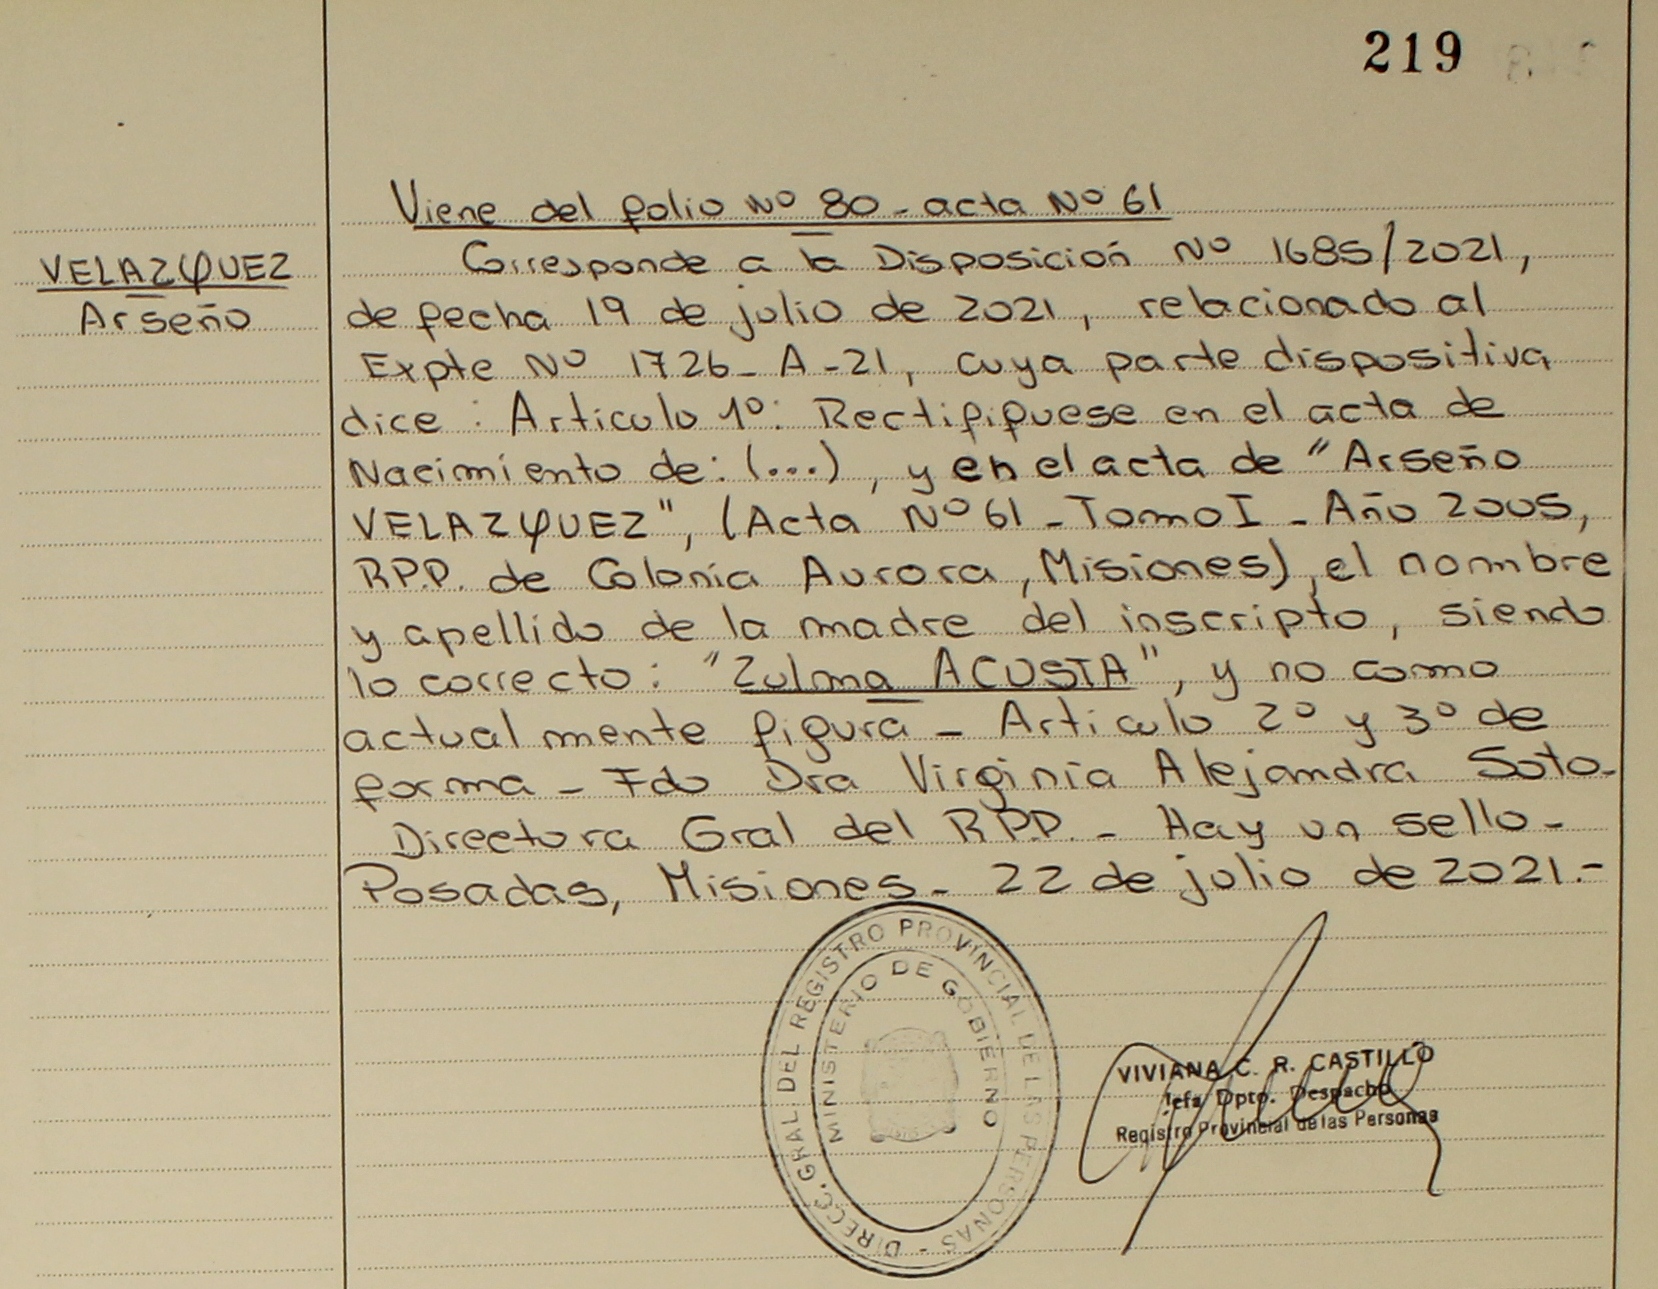 219
Viene del folio Nº 80 - acta Nº 61
VELAZQUEZ
Arseño
Corresponde a la Disposición Nº 1685/2021,
de fecha 19 de julio de 2021, relacionado al
Expte Nº 1726 - A - 21, cuya parte dispositiva
dice: Articulo 1º: Rectififuese en el acta de
Nacimiento de: (...), y en el acta de "Arseño
VELAZQUEZ", (Acta Nº 61 - Tomo I - Año 2005,
R.P.P. de Colonia Aurora, Misiones), el nombre
y apellido de la madre del inscripto, siendo
lo correcto: "Zulma ACUSTA", y no como
actualmente figura - Articulo 2º y 3º de
forma - Fdo Dra Virginia Alejandra Soto-
Directora Gral del R.P.P. - Hay un sello -
Posadas, Misiones - 22 de julio de 2021.-
DIRECC. GRAL. DEL REGISTRO PROVINCIAL DE LAS PERSONAS -
MINISTERIO DE GOBIERNO
VIVIANA C. R. CASTILLO
Jefa Dpto. Despacho
Registro Provincial de las Personas